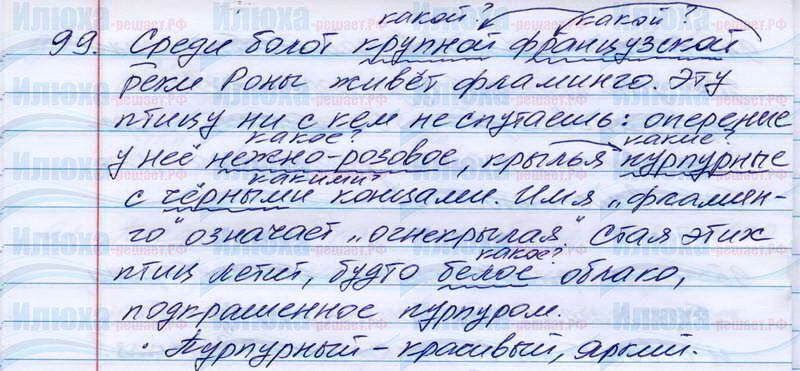 какой? какой?
99. Среди болот крупной французской
реки Роны живёт фламинго. Эту
птицу ни с кем не спутаешь: оперение
какое? какие?
у неё нежно-розовое, крылья пурпурные
какими?
с чёрными концами. Имя „фламин-
го" означает „огнекрылая". Стая этих
какое?
птиц летит, будто белое облако,
подкрашенное пурпуром.
· Пурпурный – красивый, яркий.